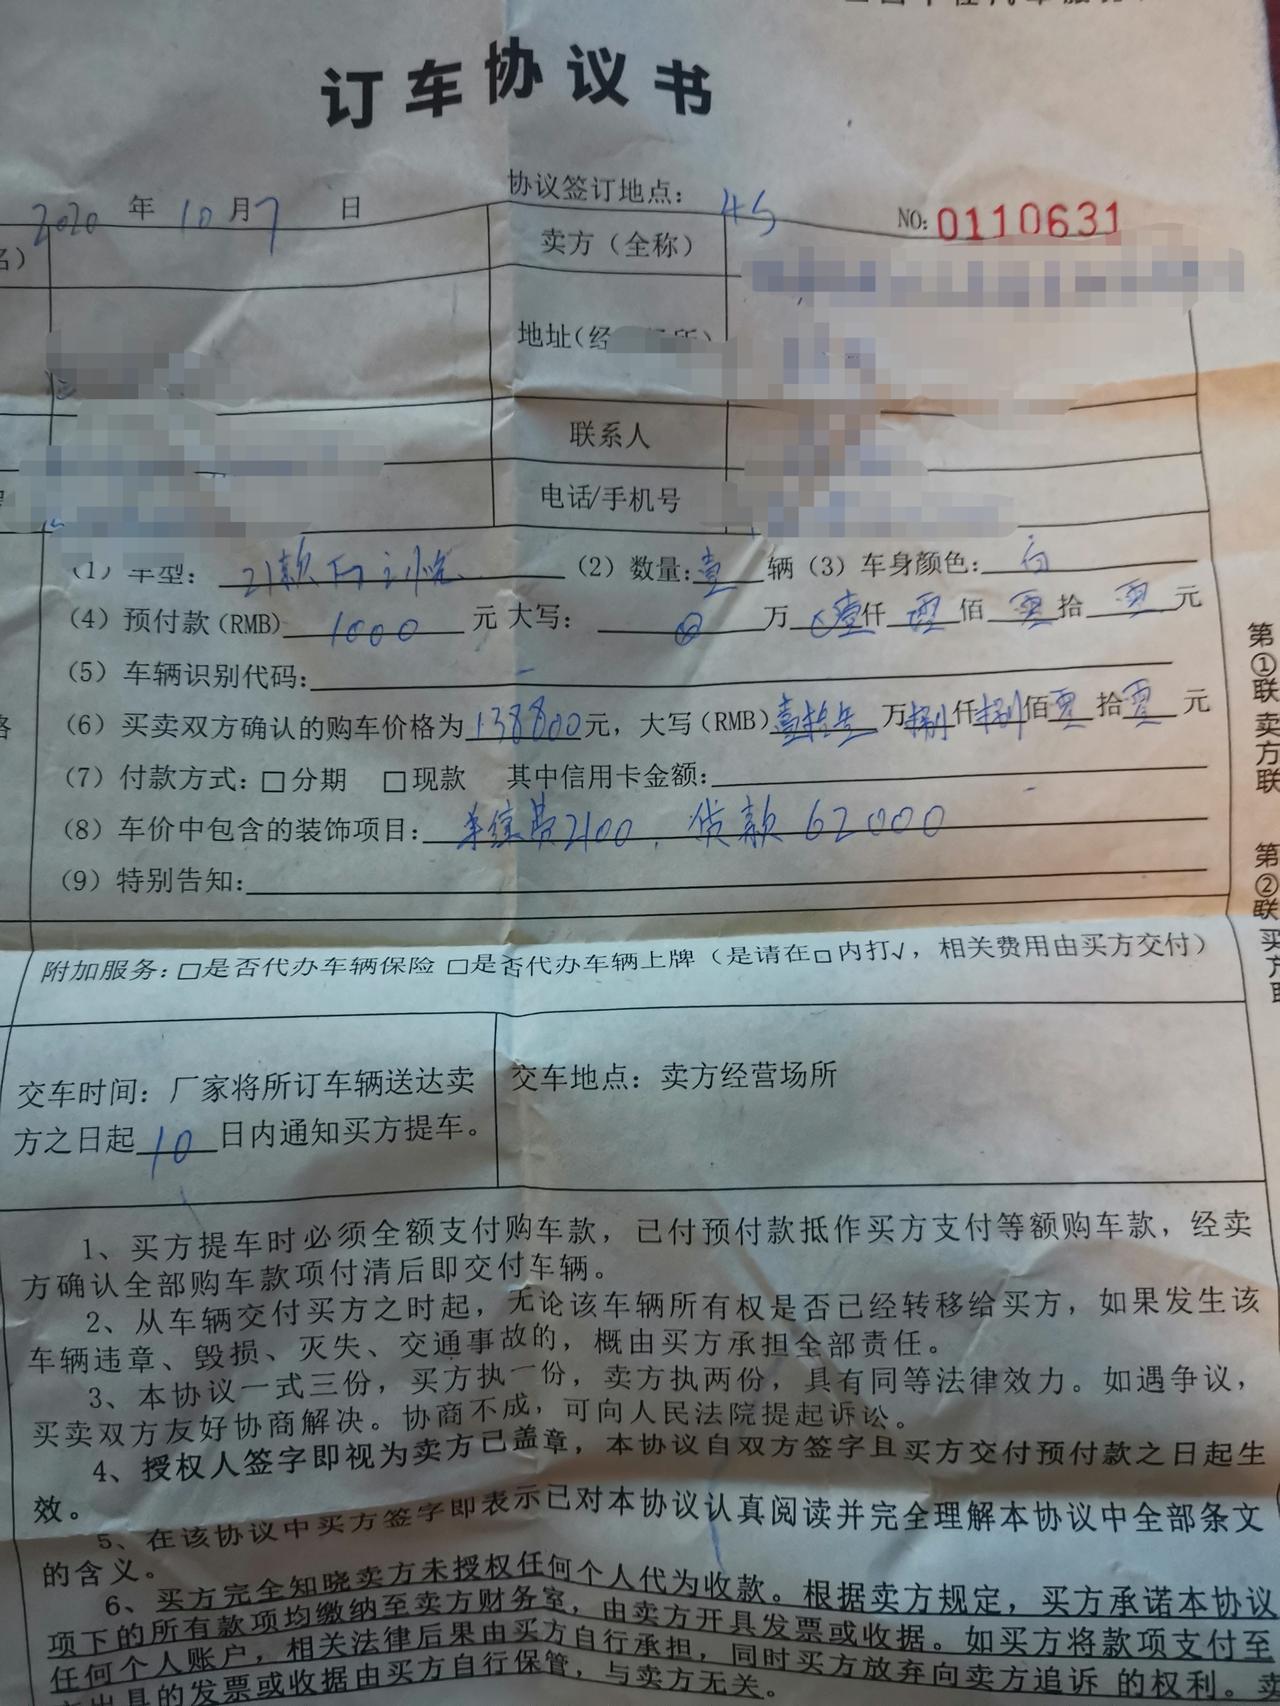 订车协议书
2020年10月7日 协议签订地点：4S NO:0110631
名） 卖方（全称）
地址(经
联系人
电话/手机号
(1)车型：21款 （2）数量:壹辆（3）车身颜色:白
（4）预付款(RMB)1000元大写：万壹仟零佰零拾零元
（5）车辆识别代码:
（6）买卖双方确认的购车价格为138800元，大写(RMB) 万捌仟捌佰零拾零元
（7）付款方式:□分期 □现款 其中信用卡金额:
（8）车价中包含的装饰项目:费2100，贷款62000
（9）特别告知:
附加服务:□是否代办车辆保险 □是否代办车辆上牌（是请在□内打√，相关费用由买方交付）
交车时间：厂家将所订车辆送达卖
方之日起10日内通知买方提车。
交车地点：卖方经营场所
1、买方提车时必须全额支付购车款，已付预付款抵作买方支付等额购车款，经卖
方确认全部购车款项付清后即交付车辆。
2、从车辆交付买方之时起，无论该车辆所有权是否已经转移给买方，如果发生该
车辆违章、毁损、灭失、交通事故的，概由买方承担全部责任。
3、本协议一式三份，买方执一份，卖方执两份，具有同等法律效力。如遇争议，
买卖双方友好协商解决。协商不成，可向人民法院提起诉讼。
4、授权人签字即视为卖方已盖章，本协议自双方签字且买方交付预付款之日起生
效。
5、在该协议中买方签字即表示已对本协议认真阅读并完全理解本协议中全部条文
的含义。
6、买方完全知晓卖方未授权任何个人代为收款。根据卖方规定，买方承诺本协议
项下的所有款项均缴纳至卖方财务室，由卖方开具发票或收据。如买方将款项支付至
任何个人账户，相关法律后果由买方自行承担，同时买方放弃向卖方追诉的权利。卖
方出具的发票或收据由买方自行保管，与卖方无关。
第①联卖方联
第②联买方联